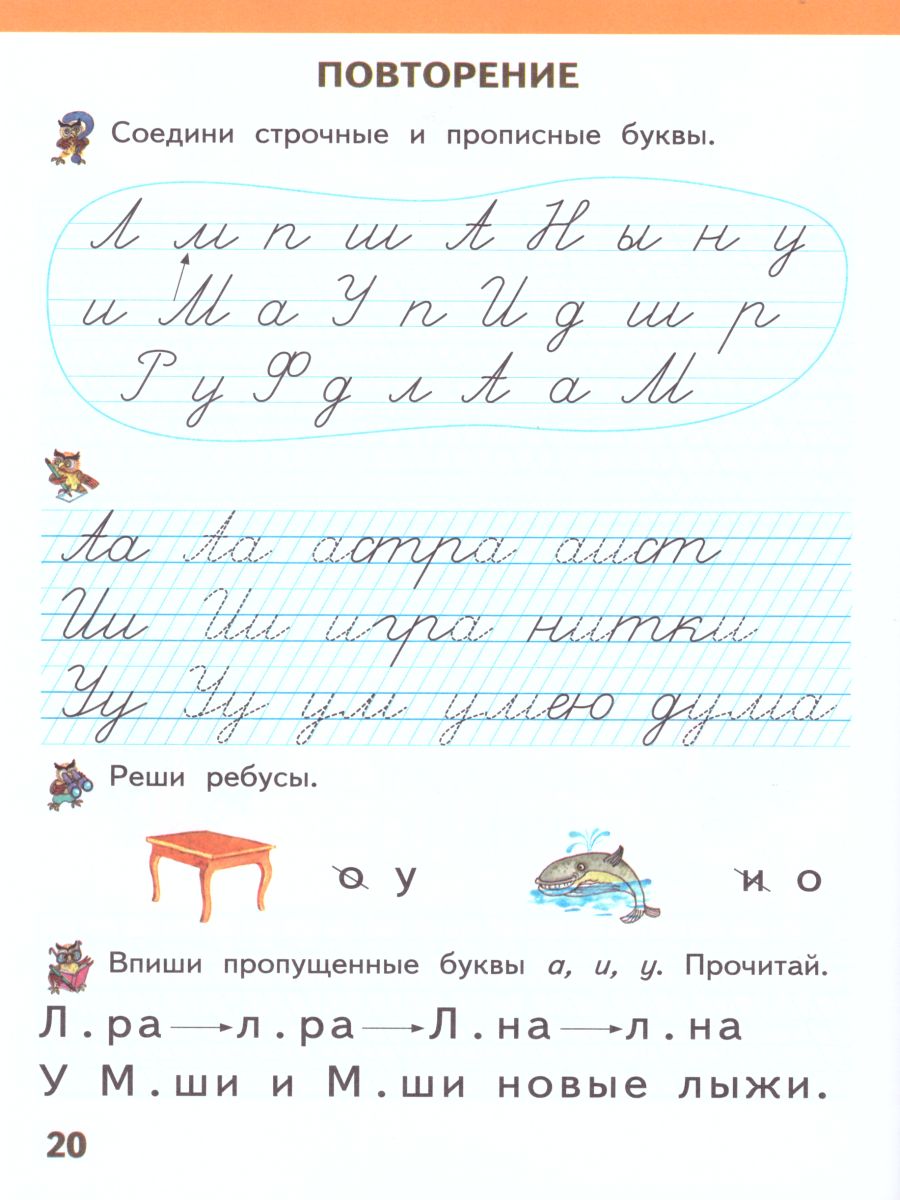 ПОВТОРЕНИЕ
Соедини строчные и прописные буквы.
Л м п ш А Н ы н у
и М а У п И д ш р
Р у Ф д л А а М
Аа Аа астра аист
Ии Ии игра нитки
Уу Уу ум умею дума
Реши ребусы.
о у и о
Впиши пропущенные буквы а, и, у. Прочитай.
Л.ра→л.ра→Л.на→л.на
У М.ши и М.ши новые лыжи.
20